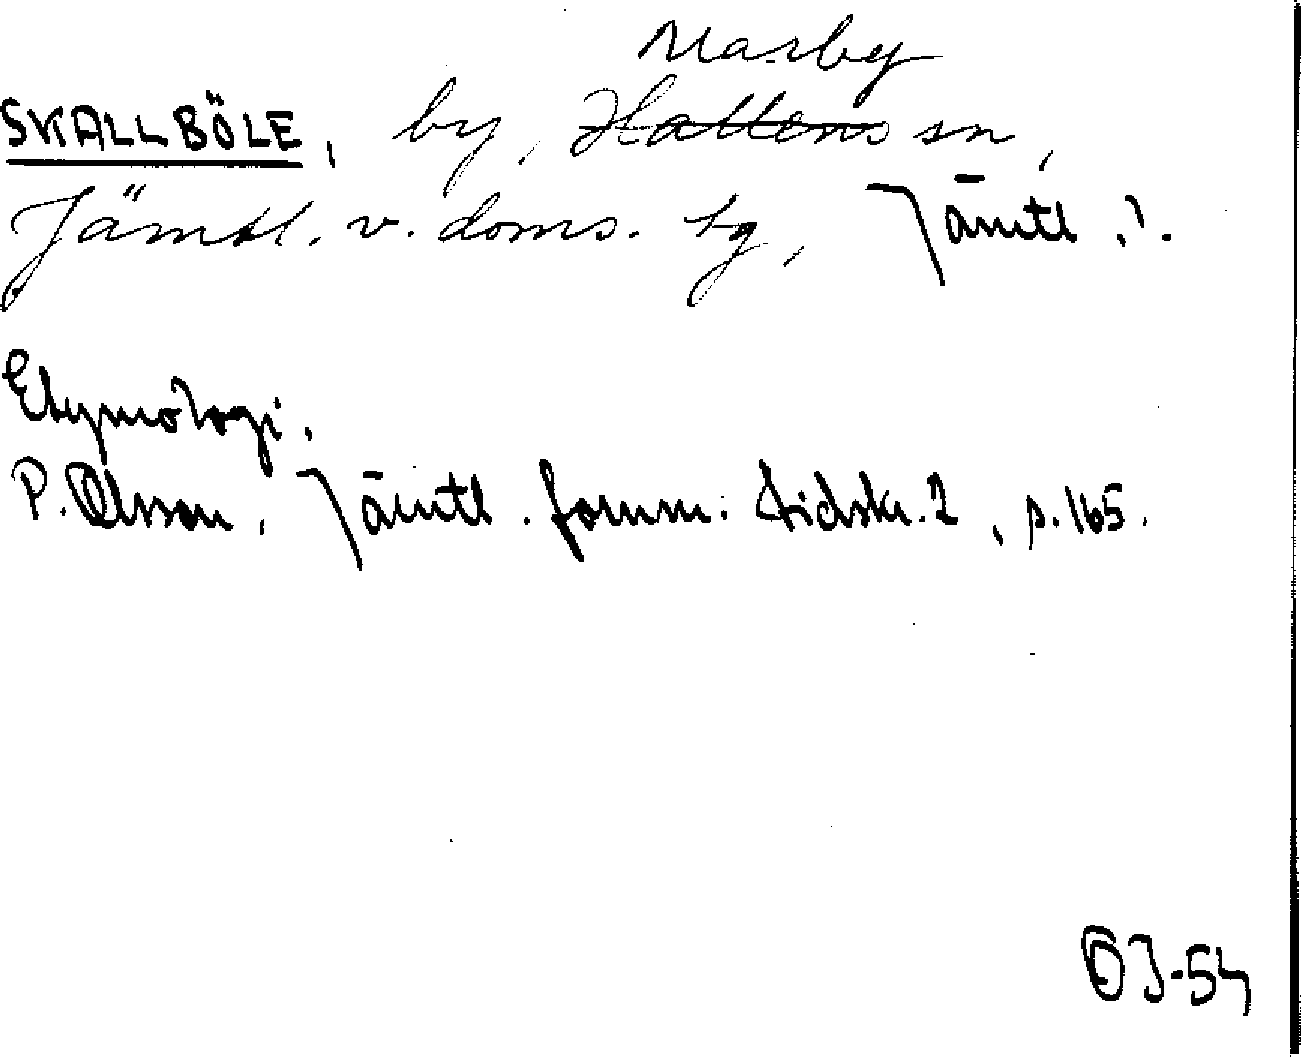 Marby
SKALLBÖLE, by, Hallens sn,
Jämtl. v. doms. tg, Jämtl. l.
Etymologi.
P. Olsson, Jämtl. fornm. tidskr. 2, s. 165.
OJ-54